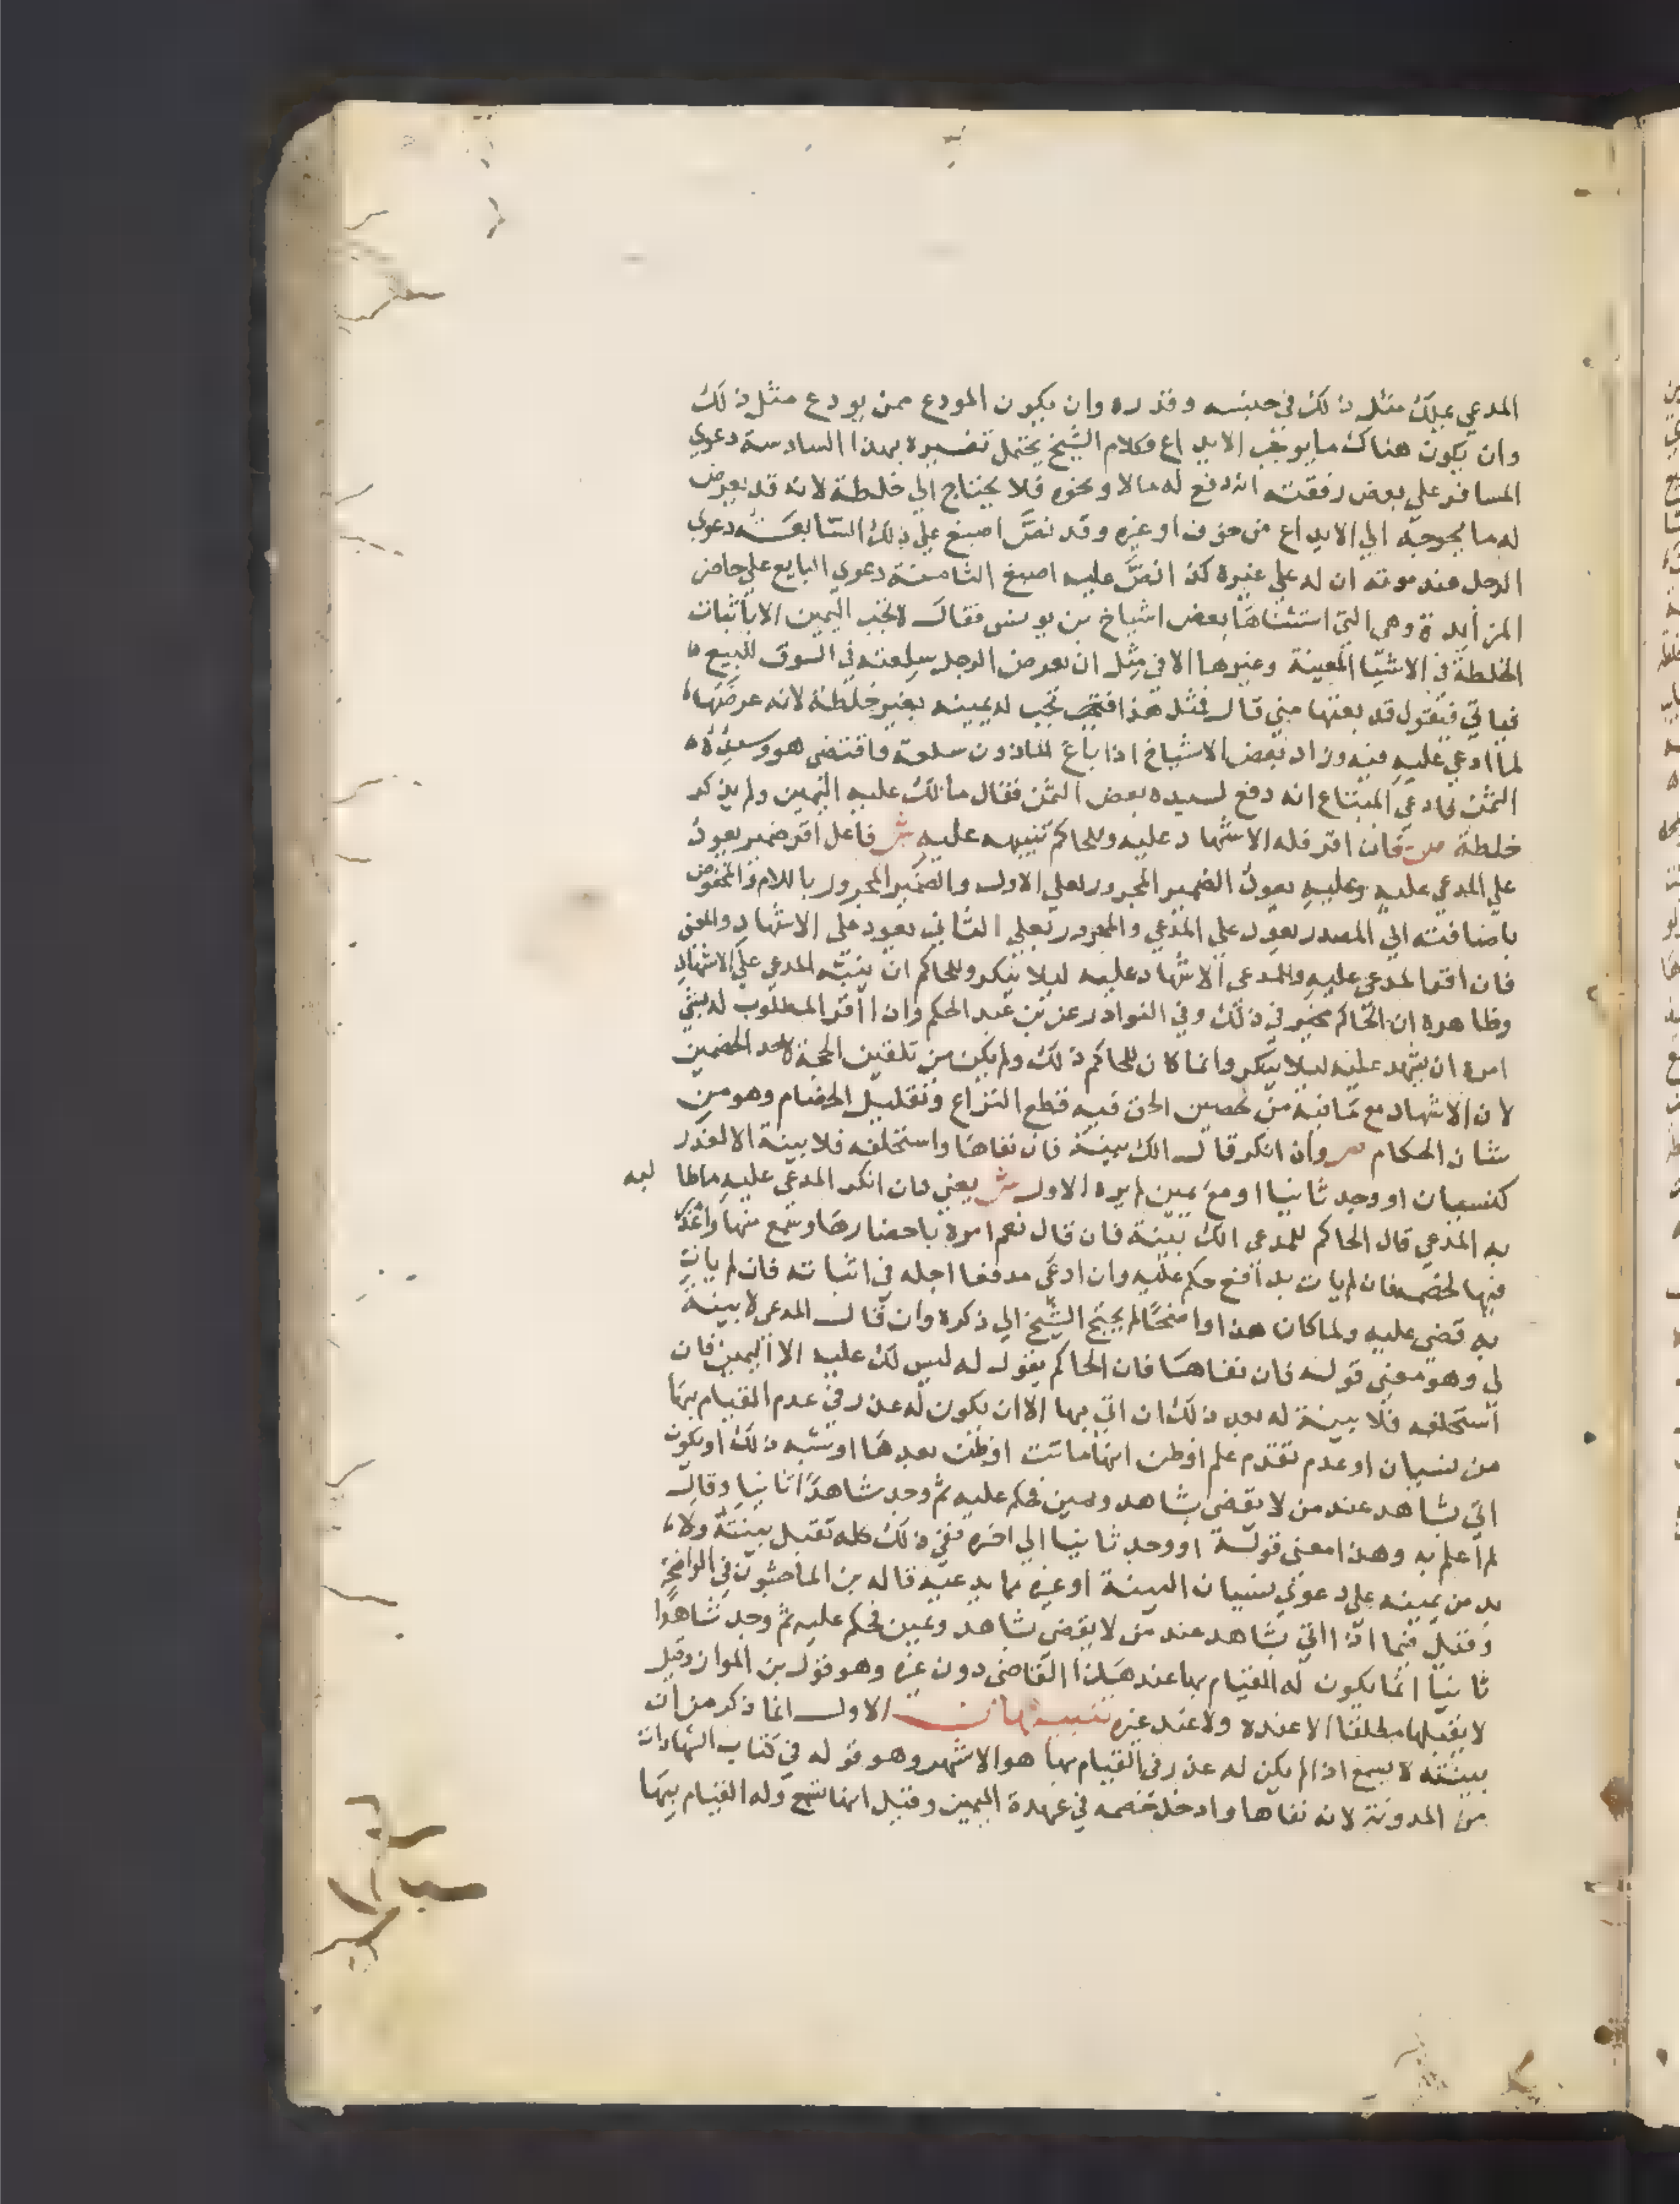 المدعي يملك مثل ذلك في جنسه وقدره وان يكون المودع ممن يودع مثل ذلك
وان يكون هناك ما يوجب الايداع وكلام الشيخ يحتمل تفسيره بهذا السادسة دعوي
المسافر علي بعض رفقته انه دفع له مالا ونحوه فلا يحتاج الي خلطة لانه قد يعرض
له ما يحوجه الي الايداع من خوف او غيره وقد نص اصبغ علي ذلك السابعة دعوي
الرجل عند موته ان له علي غيره كذا نص عليه اصبغ الثامنة دعوي البايع علي حاضر
المزايدة وهي التي استثناها بعض اشياخ بن يونس فقال لا تجب اليمين الا باثبات
الخلطة في الاشيا المعينة وغيرها الا في مثل ان يعرض الرجل سلعته في السوق للبيع
فياتي فيقول قد بعتها مني قال فمثل هذا تجب له يمينه بغير خلطة لانه عرضها
لما ادعي عليه فيه وزاد بعض الاشياخ اذا باع الماذون سلعة فاقتضي هو وسيده
الثمن فادعي المبتاع انه دفع لسيده بعض الثمن فقال مالك عليه اليمين ولم يذكر
خلطة ص فان اقر فله الاشهاد عليه وللحاكم تنبيهه عليه ش فاعل اقر ضمير يعود
علي المدعي عليه وعليه يعود الضمير المجرور بعلي الاول والضمير المجرور باللام والمخفوض
باضافته الي المصدر يعود علي المدعي والمجرور بعلي الثاني يعود علي الاشهاد والمعني
فان اقر المدعي عليه وللمدعي الاشهاد عليه ليلا ينكر وللحاكم ان ينبه المدعي علي الاشهاد
وظاهره ان الحاكم مخير في ذلك وفي النوادر عن بن عبد الحكم وان اقر المطلوب له بشي
امره ان يشهد عليه ليلا ينكر وانما كان للحاكم ذلك ولم يكن من تلقين الحجة لاحد الخصمين
لان الاشهاد مع ما فيه من تحصين الحق فيه قطع النزاع وتقليل الخصام وهو من
شان الحكام ص وان انكر قال الك بينة فان نفاها واستحلفه فلا بينة الا لعذر
كنسيان او وجد ثانيا او مع يمين لم يره الاول ش يعني فان انكر المدعي عليه ما طا لبه
به المدعي قال الحاكم للمدعي الك بينة فان قال نعم امره باحضارها وسمع منها واعذر
فيها لخصمه فان لم يات بدافع حكم عليه وان ادعي مدفعا اجله في اثباته فان لم يات
به قضي عليه ولما كان هذا واضحا لم يحتج الشيخ الي ذكره وان قال المدعي لا بينة
لي وهو معني قوله فان نفاها فان الحاكم يقول له ليس لك عليه الا اليمين فان
استحلفه فلا بينة له بعد ذلك ان اتي بها الا ان يكون له عذر في عدم القيام بها
من نسيان او عدم تقدم علم اوظن انها ماتت اوظن بعدها او نسيه ذلك او يكون
اتي بشاهد عند من لا يقضي بشاهد ويمين فحكم عليه ثم وجد شاهدا ثانيا وقال
لم اعلم به وهذا معني قوله او وجد ثانيا الي اخره ففي ذلك كله تقبل بينته ولا
بد من يمينه علي دعوي نسيان البينة او غيره مما يدعيه قاله بن الماجشون في الواضحة
وقيل فيما اذا اتي بشاهد عند من لا يقضي بشاهد ويمين فحكم عليه ثم وجد شاهدا
ثانيا انما يكون له القيام بها عند هذا القاضي دون غيره وهو قول بن المواز وقيل
لا يقبلها مطلقا لا عنده ولا عند غيره تنبيهان الاول انما ذكر من ان
بينته لا تسمع اذا لم يكن له عذر في القيام بها هو الاشهر وهو قوله في كتاب الشهادات
من المدونة لانه نفاها وادخل خصمه في عهدة اليمين وقيل انها تسمع وله القيام بها